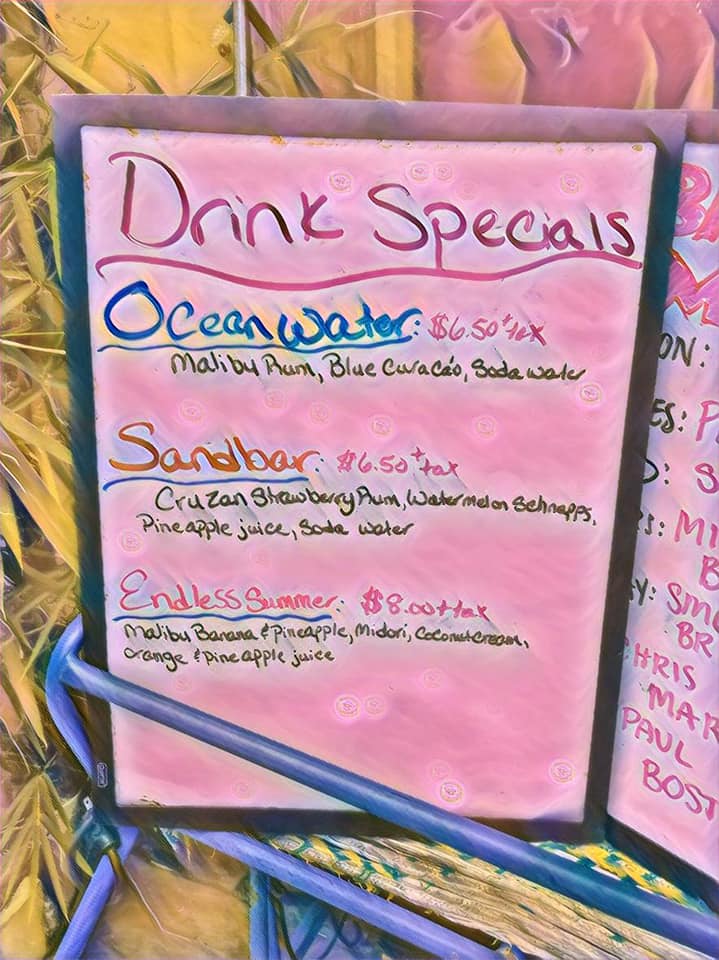 Drink Specials
Ocean Water: $6.50 + tax
Malibu Rum, Blue Curacáo, Soda water
Sandbar: $6.50 + tax
Cruzan Strawberry Rum, Watermelon Schnapps,
Pineapple juice, Soda water
Endless Summer: $8.00 + tax
Malibu Banana & Pineapple, Midori, Coconut Cream,
Orange & Pineapple juice
ON:
ES: P
D: S
MI
B
Y: SMO
BR
HRIS
MAR
PAUL
BOST